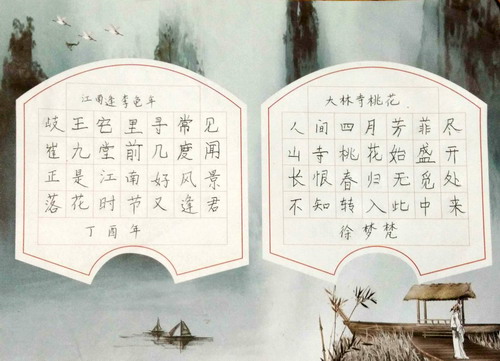 江南逢李龟年
岐王宅里寻常见
崔九堂前几度闻
正是江南好风景
落花时节又逢君
丁酉年
大林寺桃花
人间四月芳菲尽
山寺桃花始盛开
长恨春归无觅处
不知转入此中来
徐梦梵